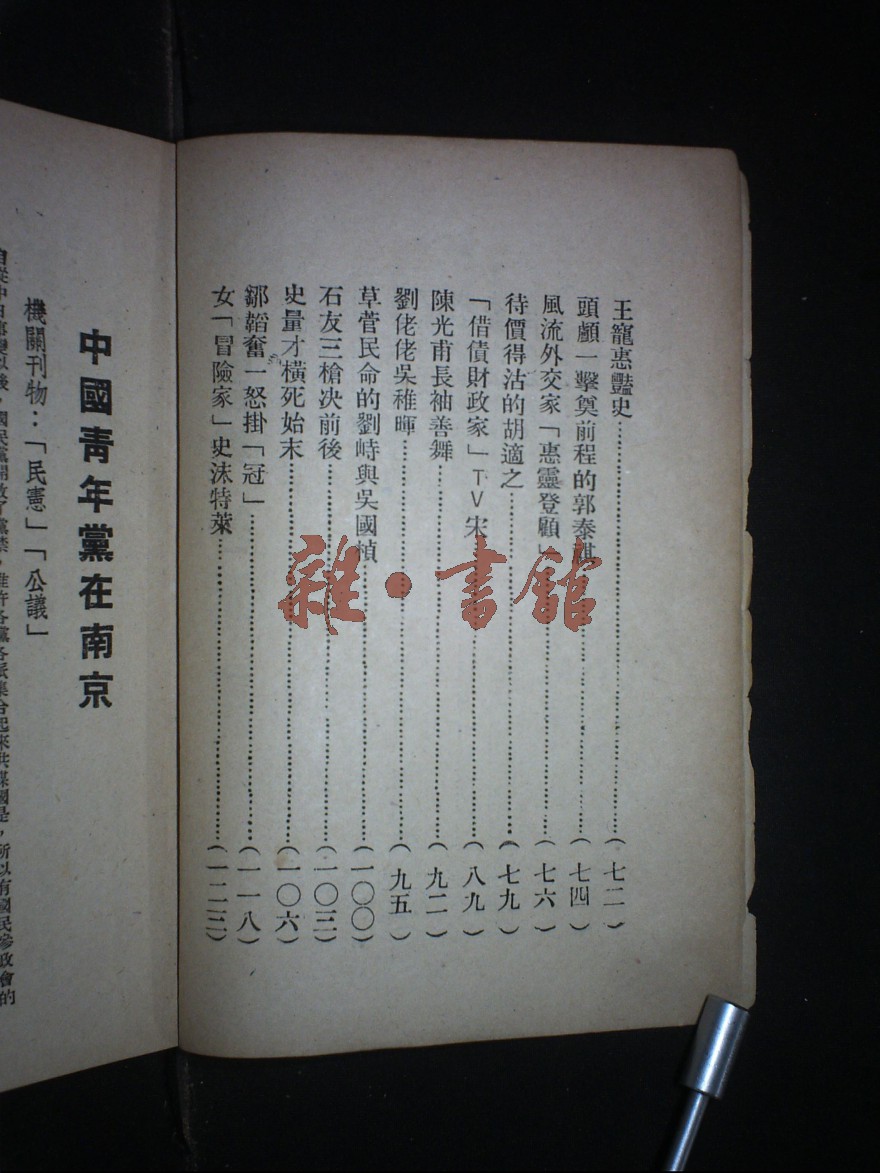 王寵惠豔史……(七二)
頭顱一擊奠前程的郭泰祺……(七四)
風流外交家「惠靈登顧」……(七六)
待價得沽的胡適之……(七九)
「借債財政家」TV宋……(八九)
陳光甫長袖善舞……(九二)
劉佬佬吳稚暉……(九五)
草菅民命的劉峙與吳國楨……(一〇〇)
石友三槍決前後……(一〇三)
史量才橫死始末……(一〇六)
鄒韜奮一怒掛「冠」……(一一八)
女「冒險家」史沫特萊……(一二三)
中國青年黨在南京
機關刊物：「民憲」「公議」
國民黨開放了黨禁，准許各黨各派集合起來共謀國是，所以有國民參政會的
雜·書館